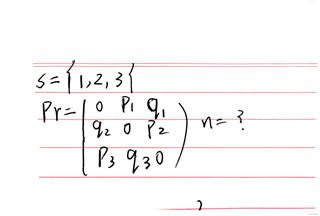 S={1,2,3}
Pr=(0 P1 q1
q2 0 P2
P3 q3 0) n=?